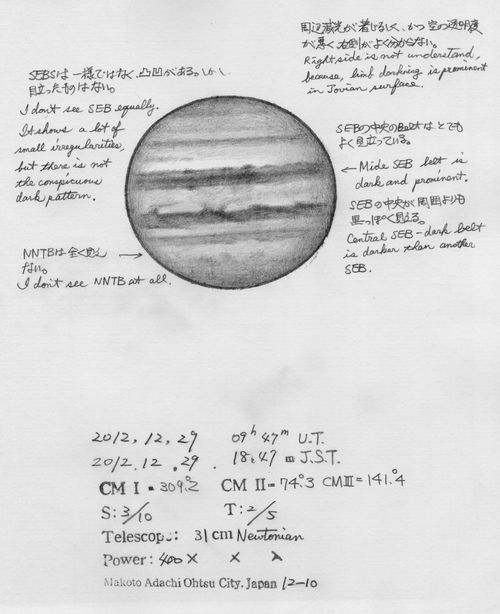 周辺減光が著じるしく、かつ空の透明度
が悪く右側がよく分からない。
Right side is not understand,
because, limb darking is prominent
in Jovian surface.
SEBSは一様ではなく、凸凹がある。しかし
目立ったものはない。
I don't see SEB equally.
It shows a lot of
small irregularities,
but there is not
the conspicuous
dark pattern.
SEBの中央のBeltはとても
よく目立っている。
← Mide SEB belt is
dark and prominent.
SEBの中央が周囲よりも
黒っぽく見える。
Central SEB-dark belt
is darker than another
SEB.
NNTBは全く見え →
ない。
I don't see NNTB at all.
2012, 12, 29 09h 47m U.T.
2012. 12. 29. 18:47 m J.S.T.
CM I = 309.°2 CM II = 74.°3 CM III = 141.°4
S: 3/10 T: 2/5
Telescope: 31 cm Newtonian
Power: 400 × ×
Makoto Adachi Ohtsu City, Japan 12-10